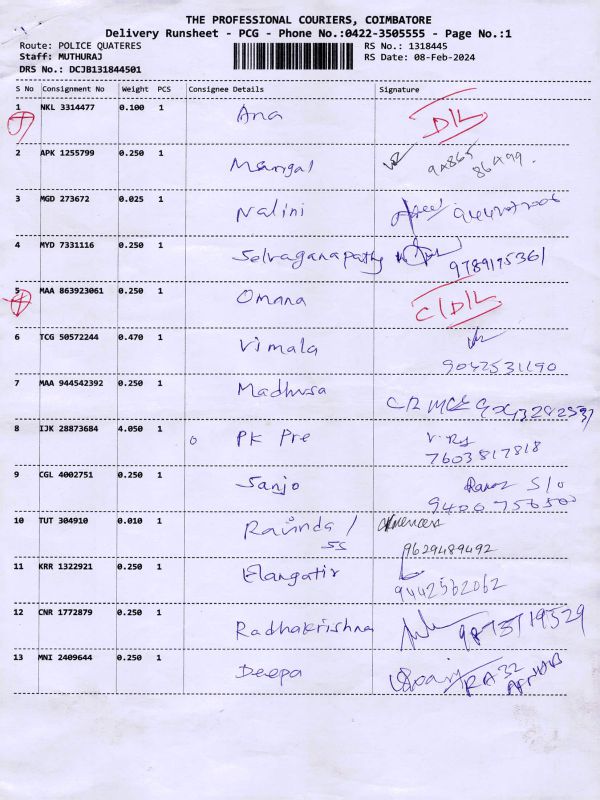 THE PROFESSIONAL COURIERS, COIMBATORE
Delivery Runsheet - PCG - Phone No.:0422-3505555 - Page No.:1
Route: POLICE QUATERES
RS No.: 1318445
Staff: MUTHURAJ
RS Date: 08-Feb-2024
DRS No.: DCJB131844501
S No Consignment No Weight PCS Consignee Details Signature
1 NKL 3314477 0.100 1 Ana D/L
2 APK 1255799 0.250 1 Mangal 94865
86499.
3 MGD 273672 0.025 1 Nalini
4 MYD 7331116 0.250 1 Selvaganapathy
9789175361
5 MAA 863923061 0.250 1 Omana C/D/L
6 TCG 50572244 0.470 1 Vimala
9042531190
7 MAA 944542392 0.250 1 Madhusa
8 IJK 28873684 4.050 1 PK Pre
7603817818
9 CGL 4002751 0.250 1 Sanjo S/o
10 TUT 304910 0.010 1
SS 9629489492
11 KRR 1322921 0.250 1 Elangatir
9442562062
12 CNR 1772879 0.250 1 Radhakrishna
13 MNI 2409644 0.250 1 Deepa